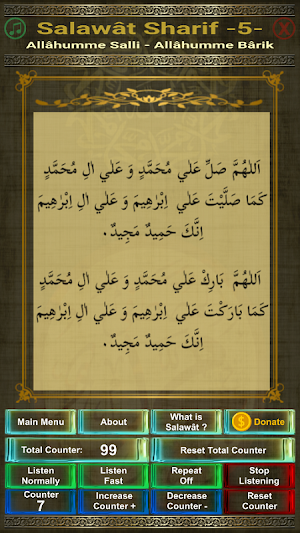 Salawât Sharif -5-
Allâhumme Salli - Allâhumme Bârik
اَللهُمَّ صَلِّ عَلٰي مُحَمَّدٍ وَ عَلٰي اٰلِ مُحَمَّدٍ
كَمَا صَلَّيْتَ عَلٰي اِبْرٰهِيمَ وَ عَلٰي اٰلِ اِبْرٰهِيمَ
اِنَّكَ حَمِيدٌ مَجِيدٌ .
اَللهُمَّ بَارِكْ عَلٰي مُحَمَّدٍ وَ عَلٰي اٰلِ مُحَمَّدٍ
كَمَا بَارَكْتَ عَلٰي اِبْرٰهِيمَ وَ عَلٰي اٰلِ اِبْرٰهِيمَ
اِنَّكَ حَمِيدٌ مَجِيدٌ .
Main Menu
About
What is
Salawât ?
Donate
Total Counter: 99
Reset Total Counter
Listen
Normally
Listen
Fast
Repeat
Off
Stop
Listening
Counter
7
Increase
Counter +
Decrease
Counter -
Reset
Counter